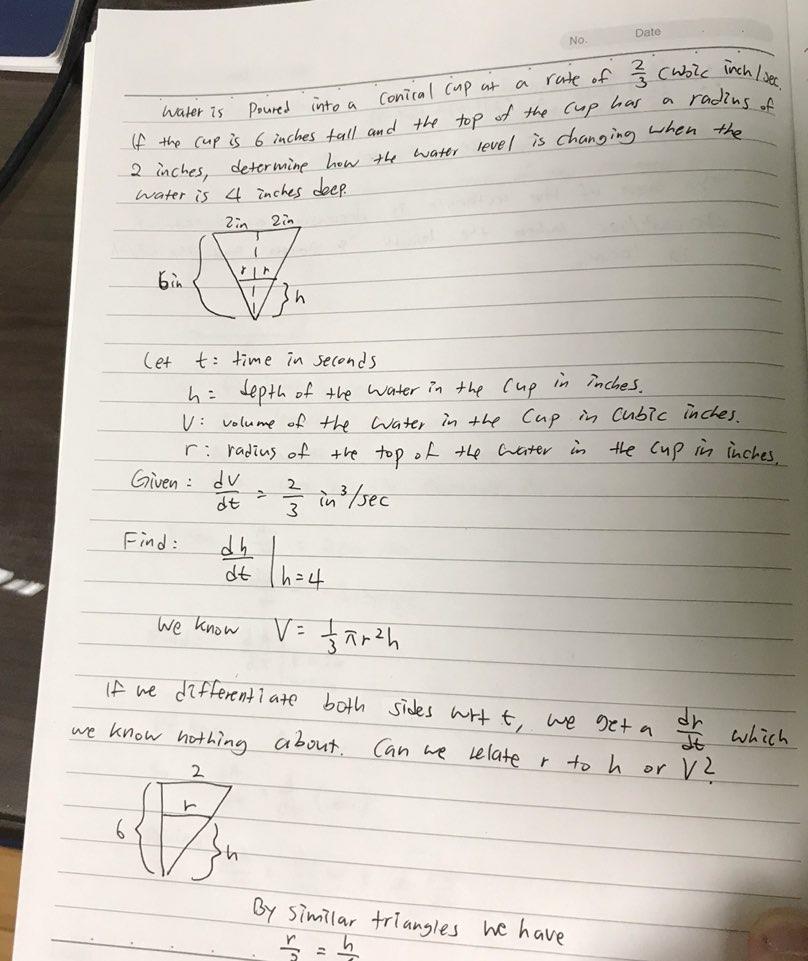 No. Date
Water is poured into a conical cup at a rate of 2/3 cubic inch/sec.
If the cup is 6 inches tall and the top of the cup has a radius of
2 inches, determine how the water level is changing when the
water is 4 inches deep.
2in 2in
r r
6in
h
Let t: time in seconds
h = depth of the water in the cup in inches.
V: volume of the water in the cup in cubic inches.
r: radius of the top of the water in the cup in inches.
Given: dV/dt = 2/3 in³/sec
Find: dh/dt |h=4
We know V = 1/3 πr²h
If we differentiate both sides wrt t, we get a dr/dt which
we know nothing about. Can we relate r to h or V?
2
r
6
h
By similar triangles we have
r = h